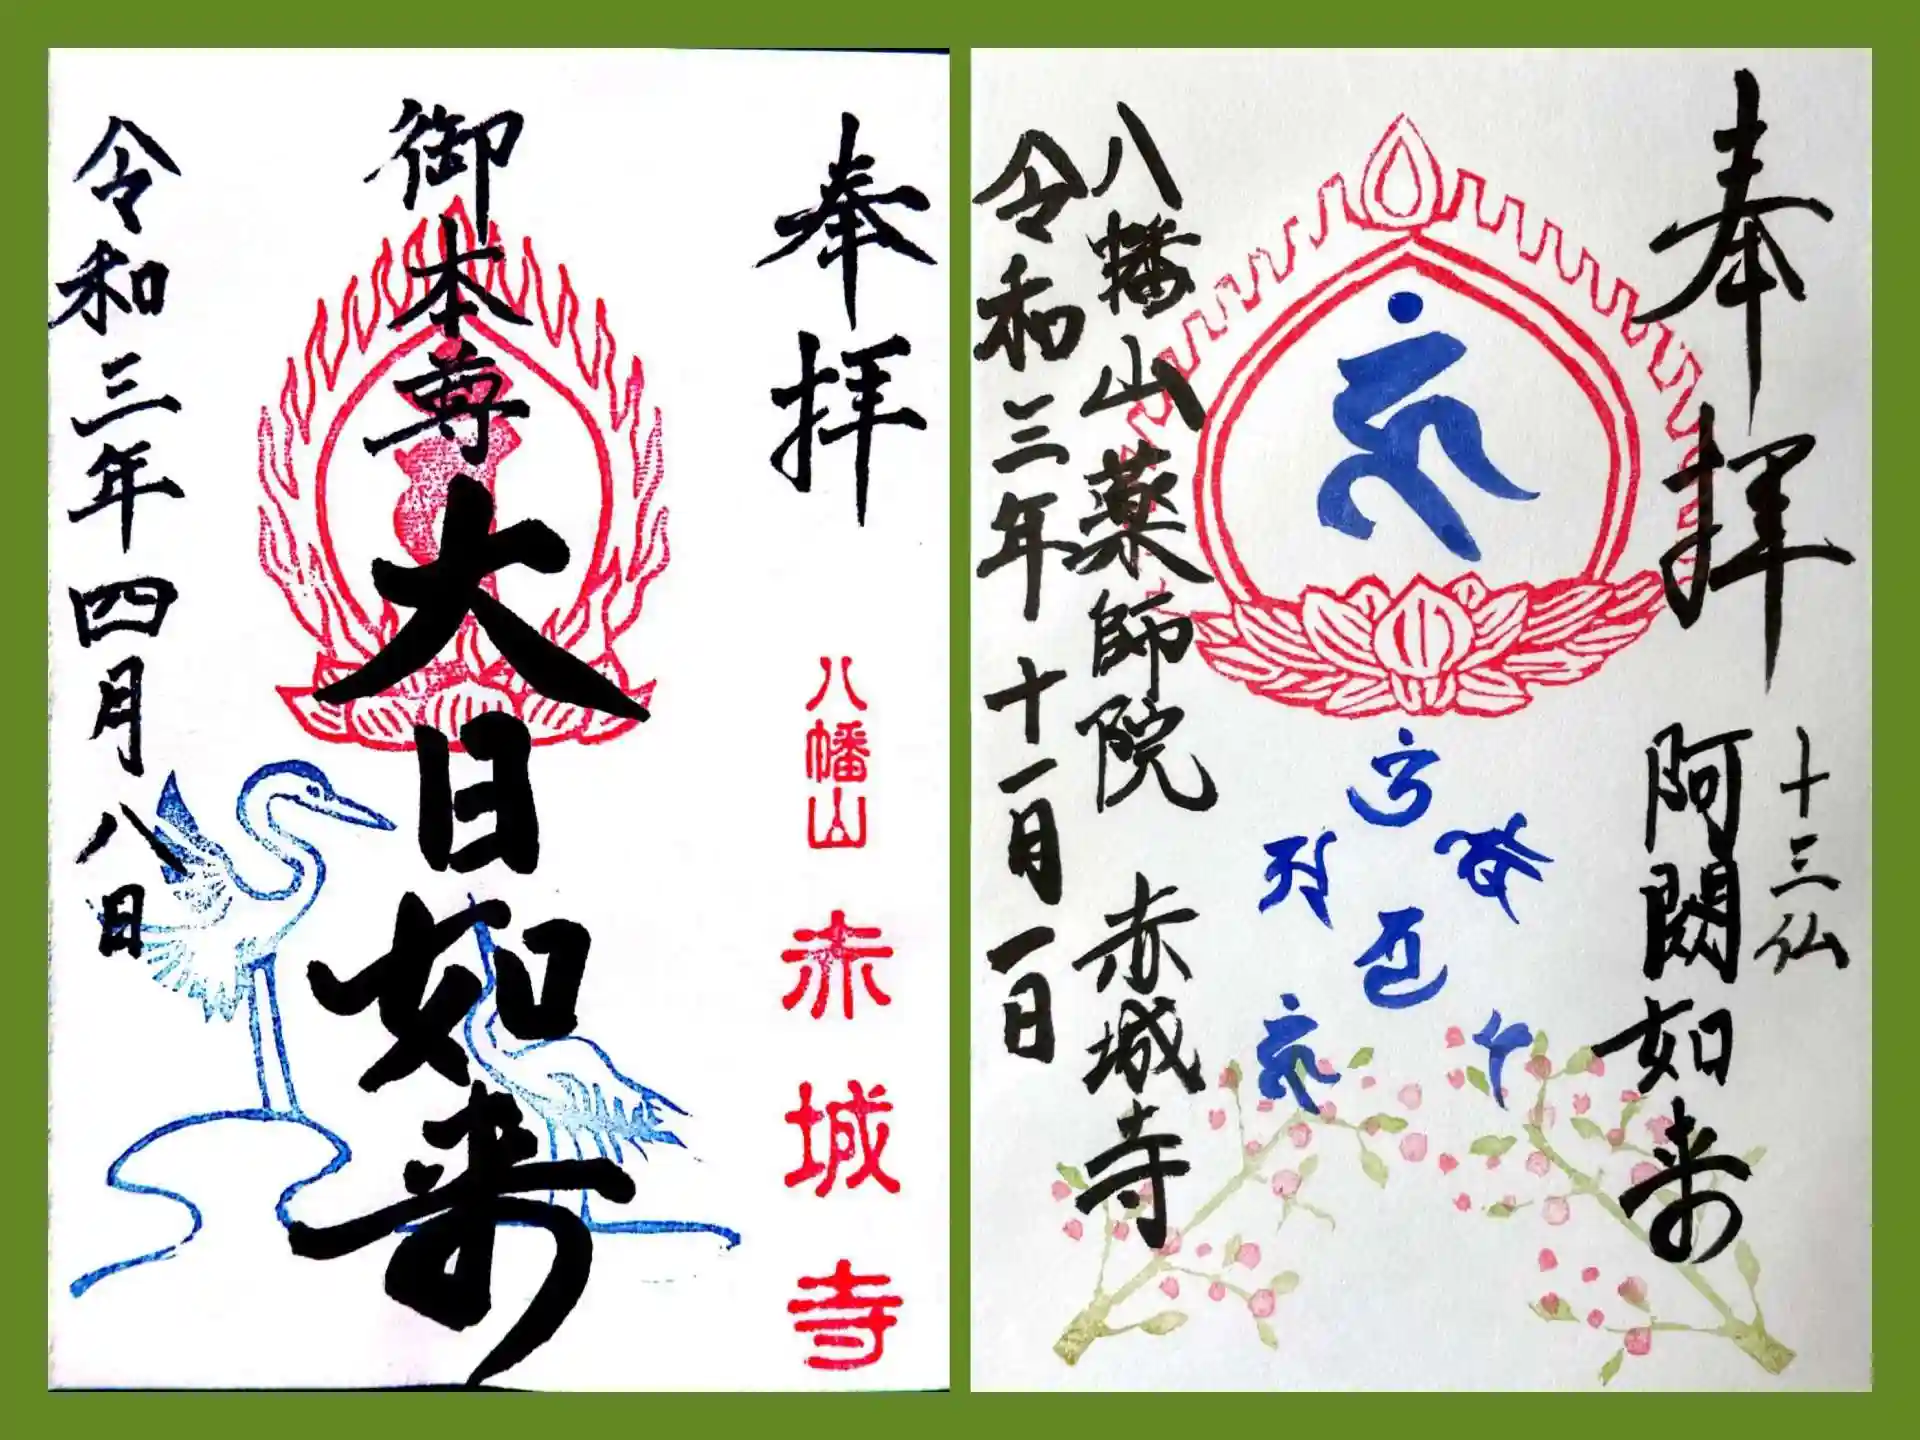 奉拝
八幡山 赤城寺
御本尊 大日如来
令和三年四月八日
奉拝
十三仏
阿閦如来
八幡山薬師院 赤城寺
令和三年十一月一日